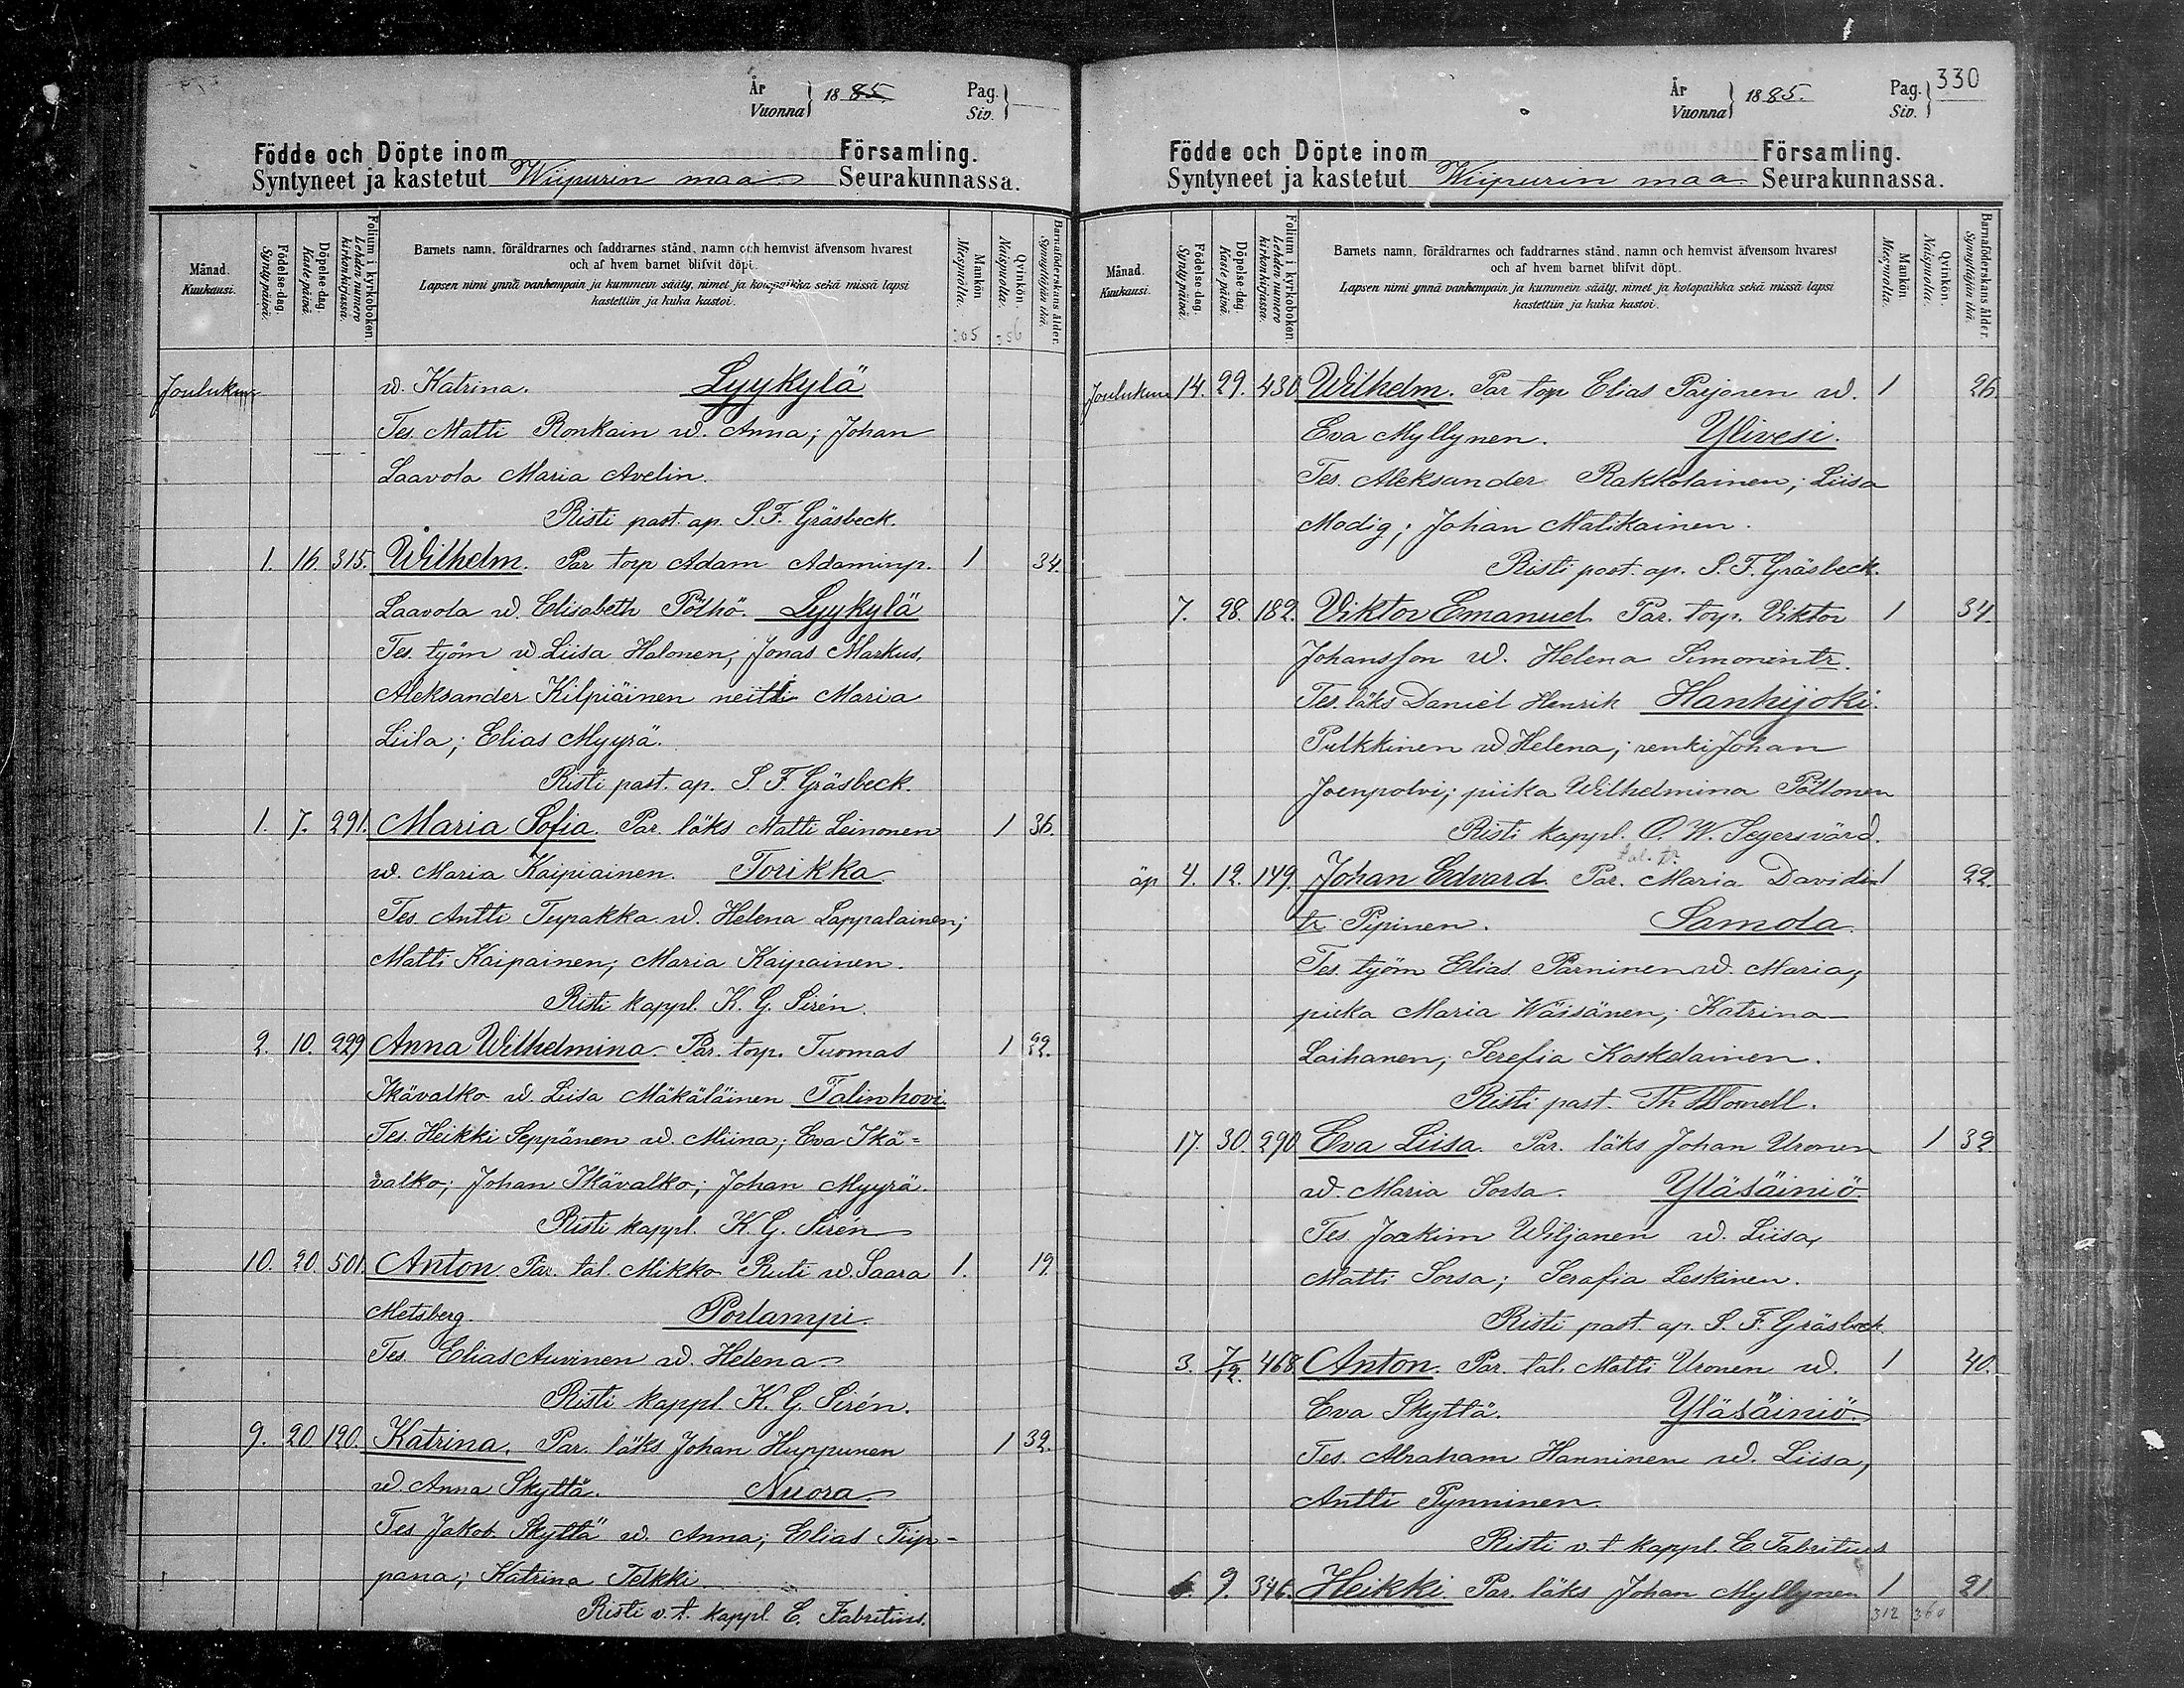 År
Vuonna } 1885.
Pag.
Siv. }
Födde och Döpte inom Församling.
Syntyneet ja kastetut Wiipurin maa Seurakunnassa.
Månad.
Kuukausi.
Födelse-dag.
Syntypäivä.
Döpelse-dag.
Kastepäivä.
Folium i kyrkoboken
Lehden numero
kirkonkirjassa.
Barnets namn, föräldrarnes och faddrarnes stånd, namn och hemvist äfvensom hvarest
och af hvem barnet blifvit döpt.
Lapsen nimi ynnä vanhempain ja kummein sääty, nimet ja kotopaikka sekä missä lapsi
kastettiin ja kuka kastoi.
Mankön
Miespuolia.
Qvinkön.
Naispuolia.
Barnaföderskans ålder.
Synnyttäjän ikä.
305 356
Jouluknn w. Katrina. Lyykylä
Tes. Matti Ronkain w. Anna; Johan
Laavola Maria Avelin.
Risti past. ap. S. F. Gräsbeck.
1. 16. 315. Wilhelm. Par torp Adam Adaminp. 1 34.
Laavola w. Elisabeth Pöthö. Lyykylä
Tes. työm w Liisa Halonen; Jonas Markus,
Aleksander Kilpiäinen neitti Maria
Liila; Elias Myyrä.
Risti past. ap. S F. Gräsbeck.
1. 7. 291. Maria Sofia. Par. läks Matti Leinonen 1 36.
w. Maria Kaipiainen. Torikka
Tes. Antti Tepakka w. Helena Lappalainen;
Matti Kaipainen; Maria Kaipainen.
Risti kappl. K. G. Sirén.
2. 10. 229 Anna Wilhelmina. Par. torp. Tuomas 1 22.
Ikävalko w. Liisa Mäkäläinen Talinhovi.
Tes. Heikki Seppänen w. Miina; Eva Ikä=
valko; Johan Ikävalko; Johan Myyrä.
Risti kappl. K. G. Sirén
10. 20. 501. Anton. Par. tal. Mikko Ruti w. Saara 1. 19.
Metsberg. Porlampi.
Tes. Elias Auvinen w. Helena
Risti kappl. K. G. Sirén.
9. 20. 120. Katrina. Par. läks Johan Huppunen 1 32.
w Anna Skyttä. Nuora
Tes Jakob Skyttä w. Anna; Elias Tiip-
pana; Katrina Telkki.
Risti v. t. kappl. E. Fabritius.
År
Vuonna } 1885.
Pag.
Siv. } 330
Födde och Döpte inom Församling.
Syntyneet ja kastetut Wiipurin maa Seurakunnassa.
Månad.
Kuukausi.
Födelse dag.
Syntypäivä.
Döpelse-dag.
Kastepäivä.
Folium i kyrkoboken
Lehden numero
kirkonkirjassa.
Barnets namn, föräldrarnes och faddrarnes stånd, namn och hemvist äfvensom hvarest
och af hvem barnet blifvit döpt.
Lapsen nimi ynnä vanhempain ja kummein sääty, nimet ja kotopaikka sekä missä lapsi
kastettiin ja kuka kastoi.
Mankön
Miespuolia.
Qvinkön.
Naispuolia.
Barnaföderskans ålder.
Synnyttäjän ikä.
Joulukuu 14. 29. 430 Wilhelm. Par torp Elias Paijonen w. 1 26
Eva Myllynen. Ylivesi.
Tes. Aleksander Rakkolainen; Liisa
Modig; Johan Matikainen.
Risti past. ap. S. F. Gräsbeck.
7. 28. 182. Viktor Emanuel. Par. torp. Viktor 1 34.
Johansson w. Helena Simonintr.
Tes. läks Daniel Henrik Hanhijoki.
Pulkkinen w Helena; renki Johan
Joenpolvi; piika Wilhelmina Pöllonen
Risti kappl. O. W. Segersvärd.
tal. tr.
äp 4. 12. 149. Johan Edvard. Par. Maria Davidin 1 22.
tr Pipinen. Samola.
Tes. työm Elias Parninen w. Maria;
piika Maria Wäisänen; Katrina
Laihanen; Serefia Koskelainen.
Risti past. Th
17. 30. 290 Eva Liisa. Par. läks Johan Uronen 1 32.
w. Maria Sorsa. Yläsäiniö.
Tes. Joakim Wiljanen w. Liisa,
Matti Sorsa; Serafia Leskinen.
Risti past. ap. S. F. Gräsbeck.
3. 7/12. 468 Anton. Par. tal. Matti Uronen w. 1 40.
Eva Skyttä. Yläsäiniö.
Tes. Abraham Hanninen w. Liisa,
Antti Pynninen.
Risti v. t kappl. E. Fabritius
6. 9. 346. Heikki. Par. läks Johan Myllynen 1 21.
312 360